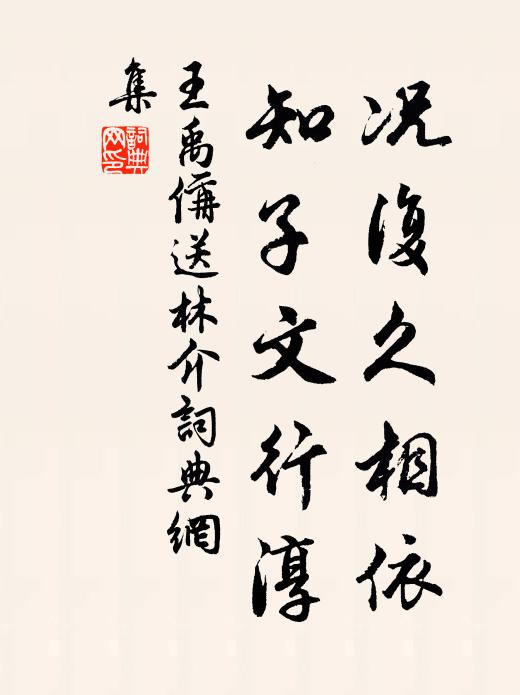 况復久相依
知子文行淳
王禹偁送林介詞典網
集
詞典
网印